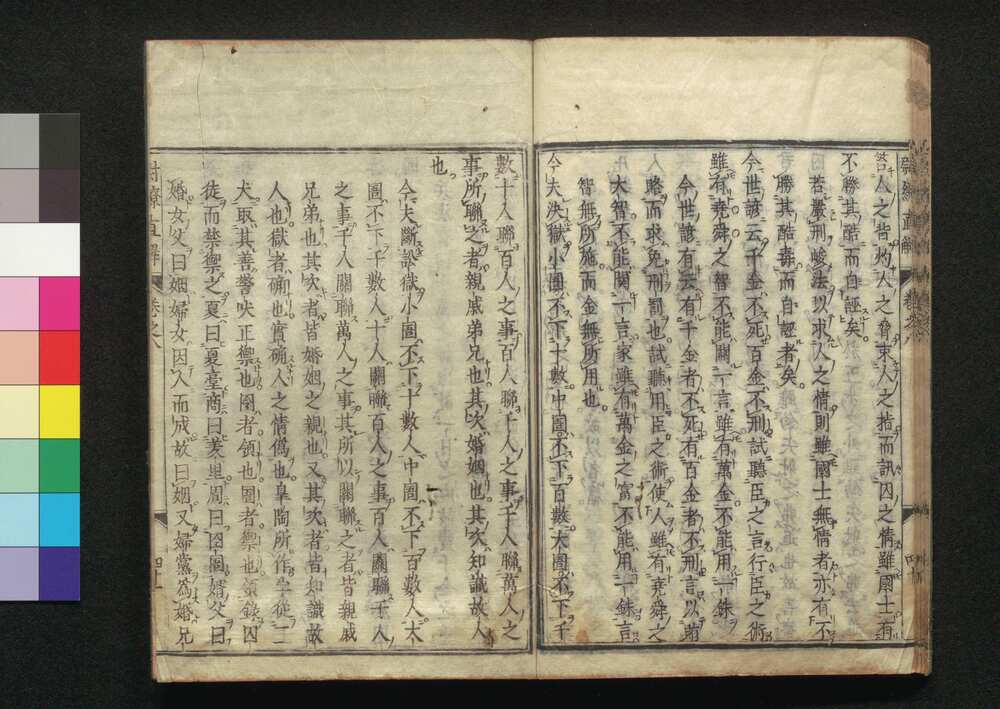 笞人之背灼人之脅束人之指而訊囚之情雖國士有
不勝其酷而自誣矣
若嚴刑峻法以求人之情則雖國士無情者亦有不
勝其酷毒而自誣者矣
今世諺云千金不死百金不刑試聽臣之言行臣之術
雖有堯舜之智不能關一言雖有萬金不能用一銖
今世諺有云有千金者不死有百金者不刑言以賄
賂而求免刑罰也試聽用臣之術使人雖有堯舜之
大智不能関一言家雖有萬金之富不能用一銖言
智無所施而金無所用也
今夫決獄小圄不下十數中圄不下百數大圄不下千
數十人聯百人之事百人聯千人之事千人聯萬人之
事所聯之者親戚弟兄也其次婚姻也其次知識故人
也
今夫斷訟獄小圄不下十數人中圄不下百數人大
圄不下千數人十人關聯百人之事百人關聯千人
之事千人關聯萬人之事其所以關聯之者皆親戚
兄弟也其次者皆婚姻之親也又其次者皆知識故
人也獄者确也實确人之情僞也皐陶所作字從二
犬取其善警吠正禦也囹者領也圄者禦也領錄囚
徒而禁禦之夏曰夏臺商曰羑里周曰囹圄婿父曰
婚女父曰姻婦女因人而成故曰姻又婦黨為婚兄
尉繚直解
卷之